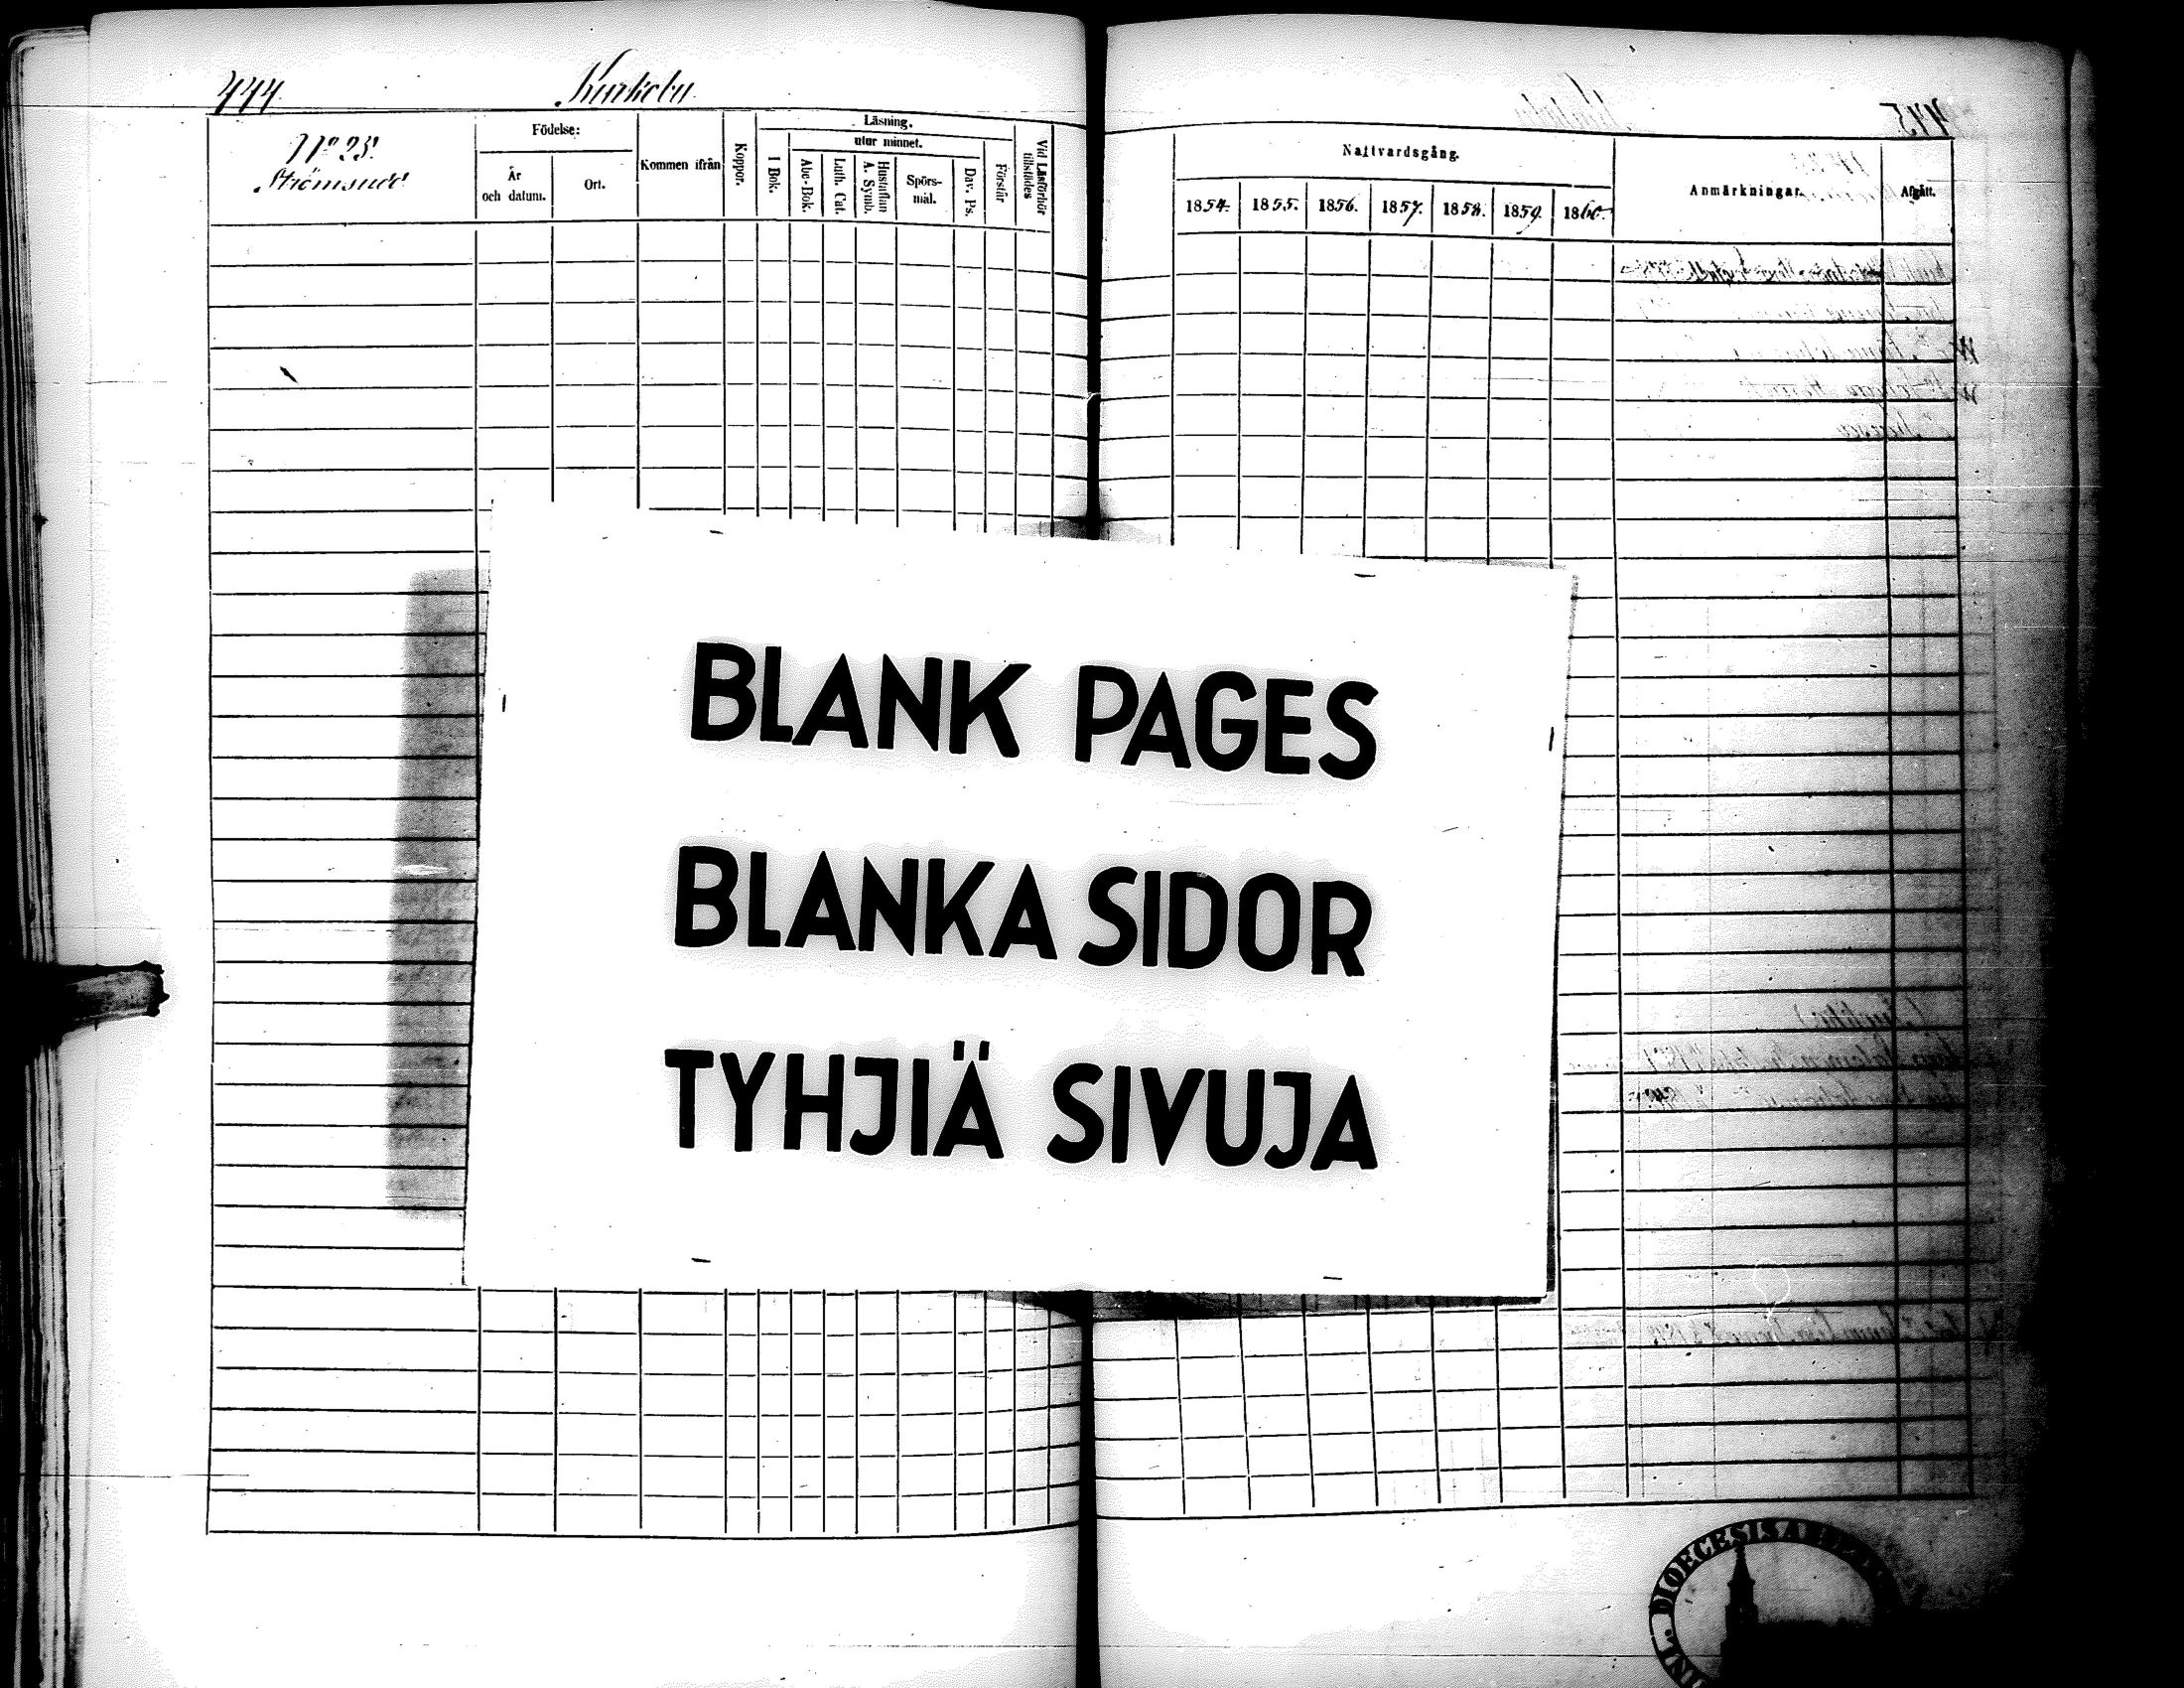 444
Nº 23.
Strömsudd
Födelse:
År
och datum.
Ort.
Kommen ifrån
Koppor.
Läsning.
utur minnet.
I Bok.
Abc-Bok.
Luth. Cat.
Hustaflan
A. Symb.
Spörs-
mål.
Dav. Ps.
Förstår
Vid Läsförhör
tillstädes
Nattvardsgång.
1854.
1855.
1856.
1857.
1858.
1859.
1860.
Anmärkningar.
Afgått.
BLANK PAGES
BLANKA SIDOR
TYHJIÄ SIVUJA
DIOECESIS